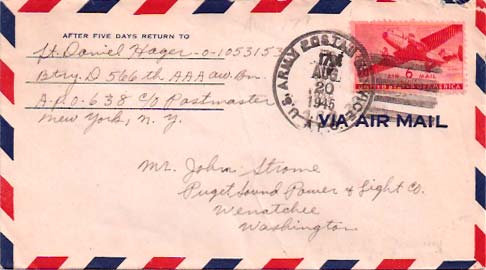 AFTER FIVE DAYS RETURN TO
Lt. Daniel Hager-O-1053153
Btry. D 566th AAA aw. Bn.
A.P.O. 638 c/o Postmaster
New York, N.Y.
U.S. ARMY POSTAL SERVICE
AUG
20
1945
A.P.O.
6¢
AIR MAIL
UNITED STATES OF AMERICA
VIA AIR MAIL
Mr. John Strome
Puget Sound Power & Light Co.
Wenatchee
Washington